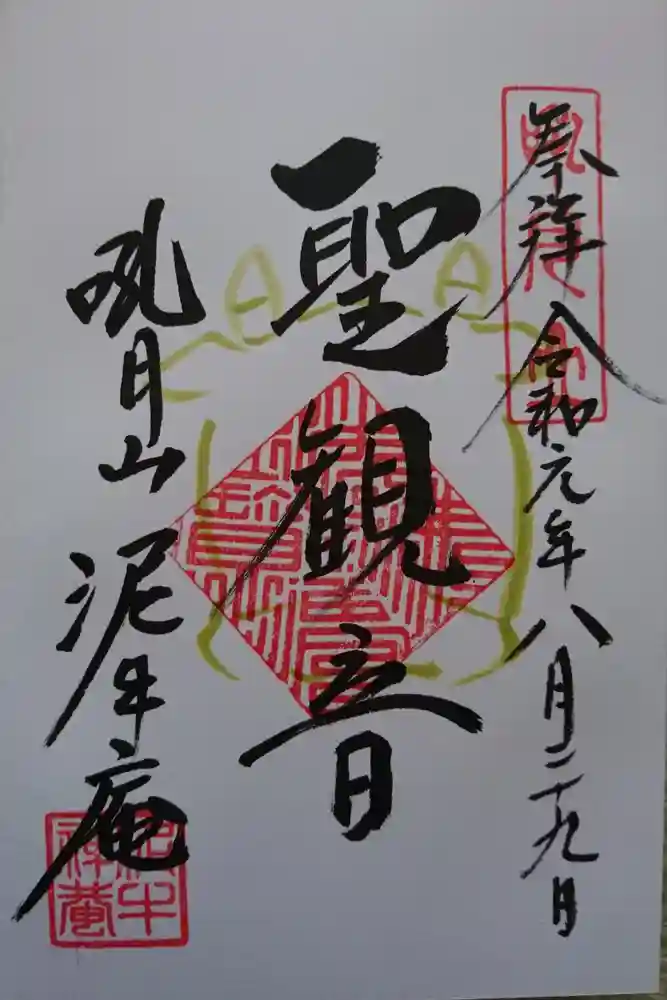 奉拝 令和元年八月二十九日
聖観音
吼月山 泥牛庵